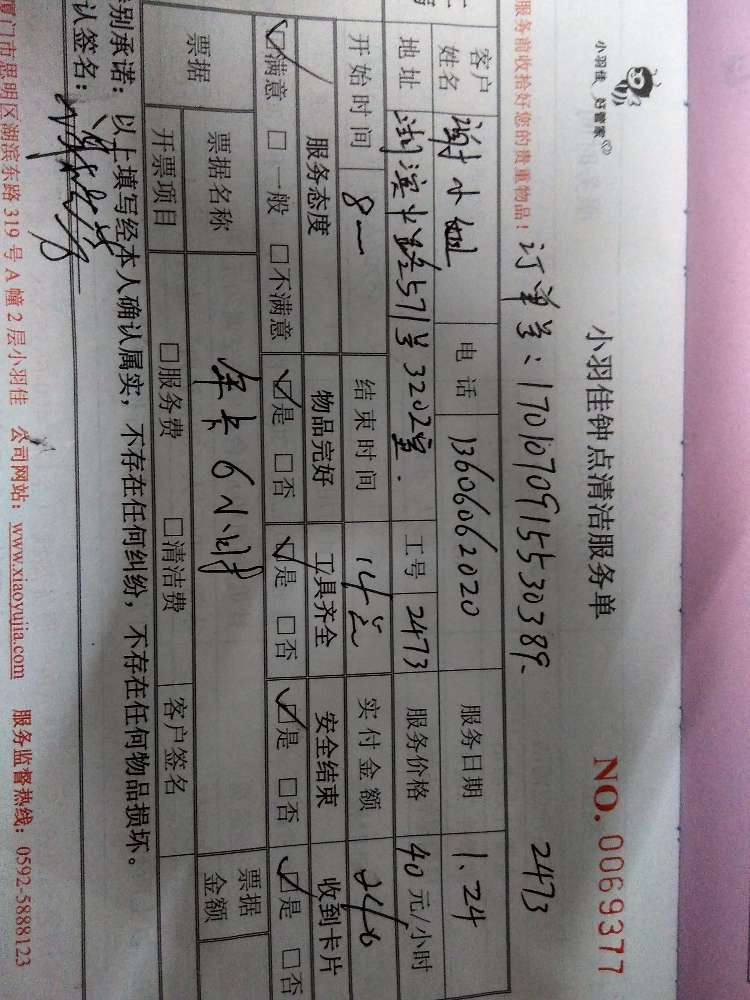 小羽佳 好管家
小羽佳钟点清洁服务单 NO. 0069377
服务前收拾好您的贵重物品! 订单号:1701070915530389. 2473
客户姓名 谢小姐 电话 13606062020 服务日期 1.24
地址 湖滨中路2571号3202室. 工号 2473 服务价格 40元/小时
开始时间 8一 结束时间 14 实付金额 240
服务态度 物品完好 工具齐全 安全结束 收到卡片
☑满意 □一般 □不满意 ☑是 □否 ☑是 □否 ☑是 □否 ☑是 □否
票据 票据名称 年卡6小时 票据金额
开票项目 □服务费 □清洁费 客户签名
别承诺:以上填写经本人确认属实,不存在任何纠纷,不存在任何物品损坏。
认签名:
厦门市思明区湖滨东路319号A幢2层小羽佳 公司网站:www.xiaoyujia.com 服务监督热线:0592-5888123